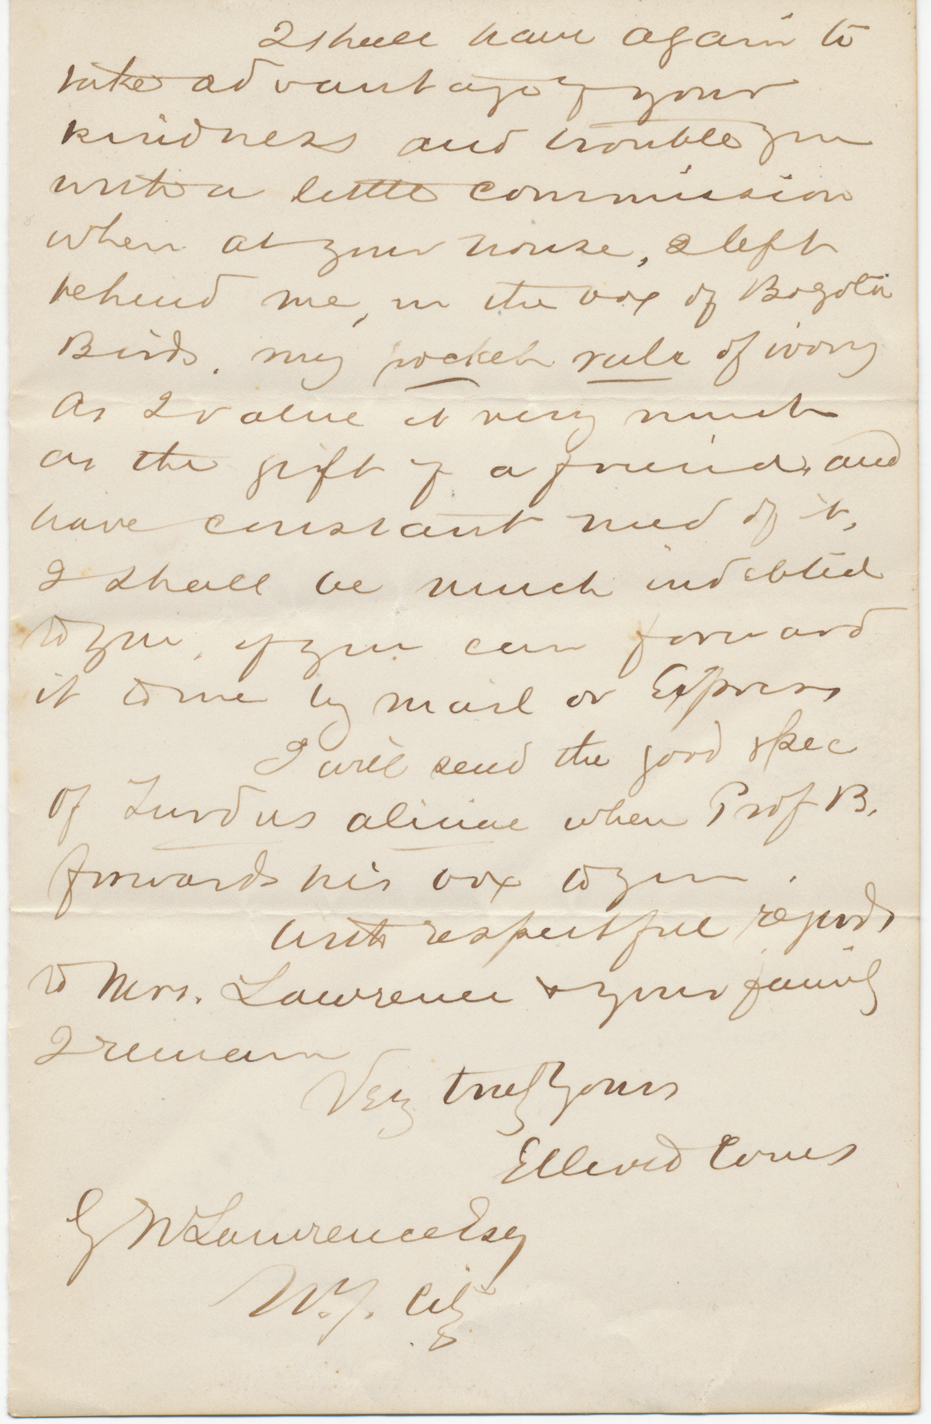 I shall have again to
take advantage of your
kindness and trouble you
with a little commission
when at your house, I left
behind me, in the box of Bogota
Birds, my pocket rule of ivory
As I value it very much
as the gift of a friend, and
have constant need of it,
I shall be much indebted
to you, if you can forward
it to me by mail or Express
I will send the good spec
of Turdus aliciae when Prof B.
forwards his box to you.
With respectful regards
to Mrs. Lawrence & your family
I remain
Very truly Yours
Elliott Coues
G N Lawrence Esq
N.Y. City